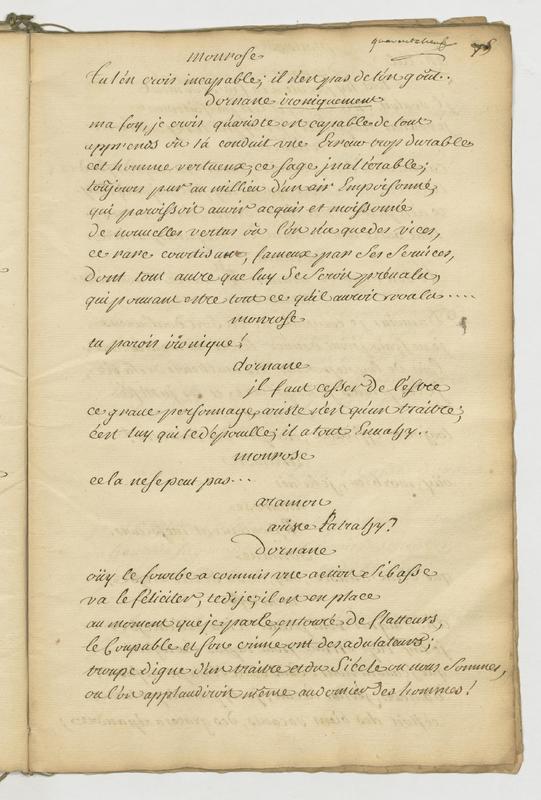 quarante neuf
monrose
tu l'en crois incapable; il n'en pas de l'or goût.
Dornane ironiquement
ma foy, je crois qu'ariste en capable de tout
apprends où l'a conduit vne Erreur trop durable
cet homme vertueux, ce sage jnalterable;
toûjours pur au millieu d'un air Empoisonné;
qui paroissoit auoir acquis et moissonné
de nouvelles vertus où l'on n'a que des vices,
ce rare courtisan, fameux par ses seruices,
dont tout autre que luy se seroit préualu,
qui pouuant estre tout ce qu'il auroit voulu....
monrose
tu parois ironique!
dornane
jl faut cesser de l'estre
ce graue personnage, ariste n'en qu'un traitre;
c'en luy qui te dépouille; il a tout Enuahy.
monrose
cela ne se peut pas...
aramon
ariste l'a trahy?
Dornane
oüy le fourbe a commis vne action si basse
va le féliciter, te dis-je; il en en place
au moment que je parle, entouré de flatteurs,
le Coupable et son crime ont des adulateurs;
troupe digne d'un traitre et du Siécle ou nous sommes,
ou l'on applaudiroit même au dernier des hommes!